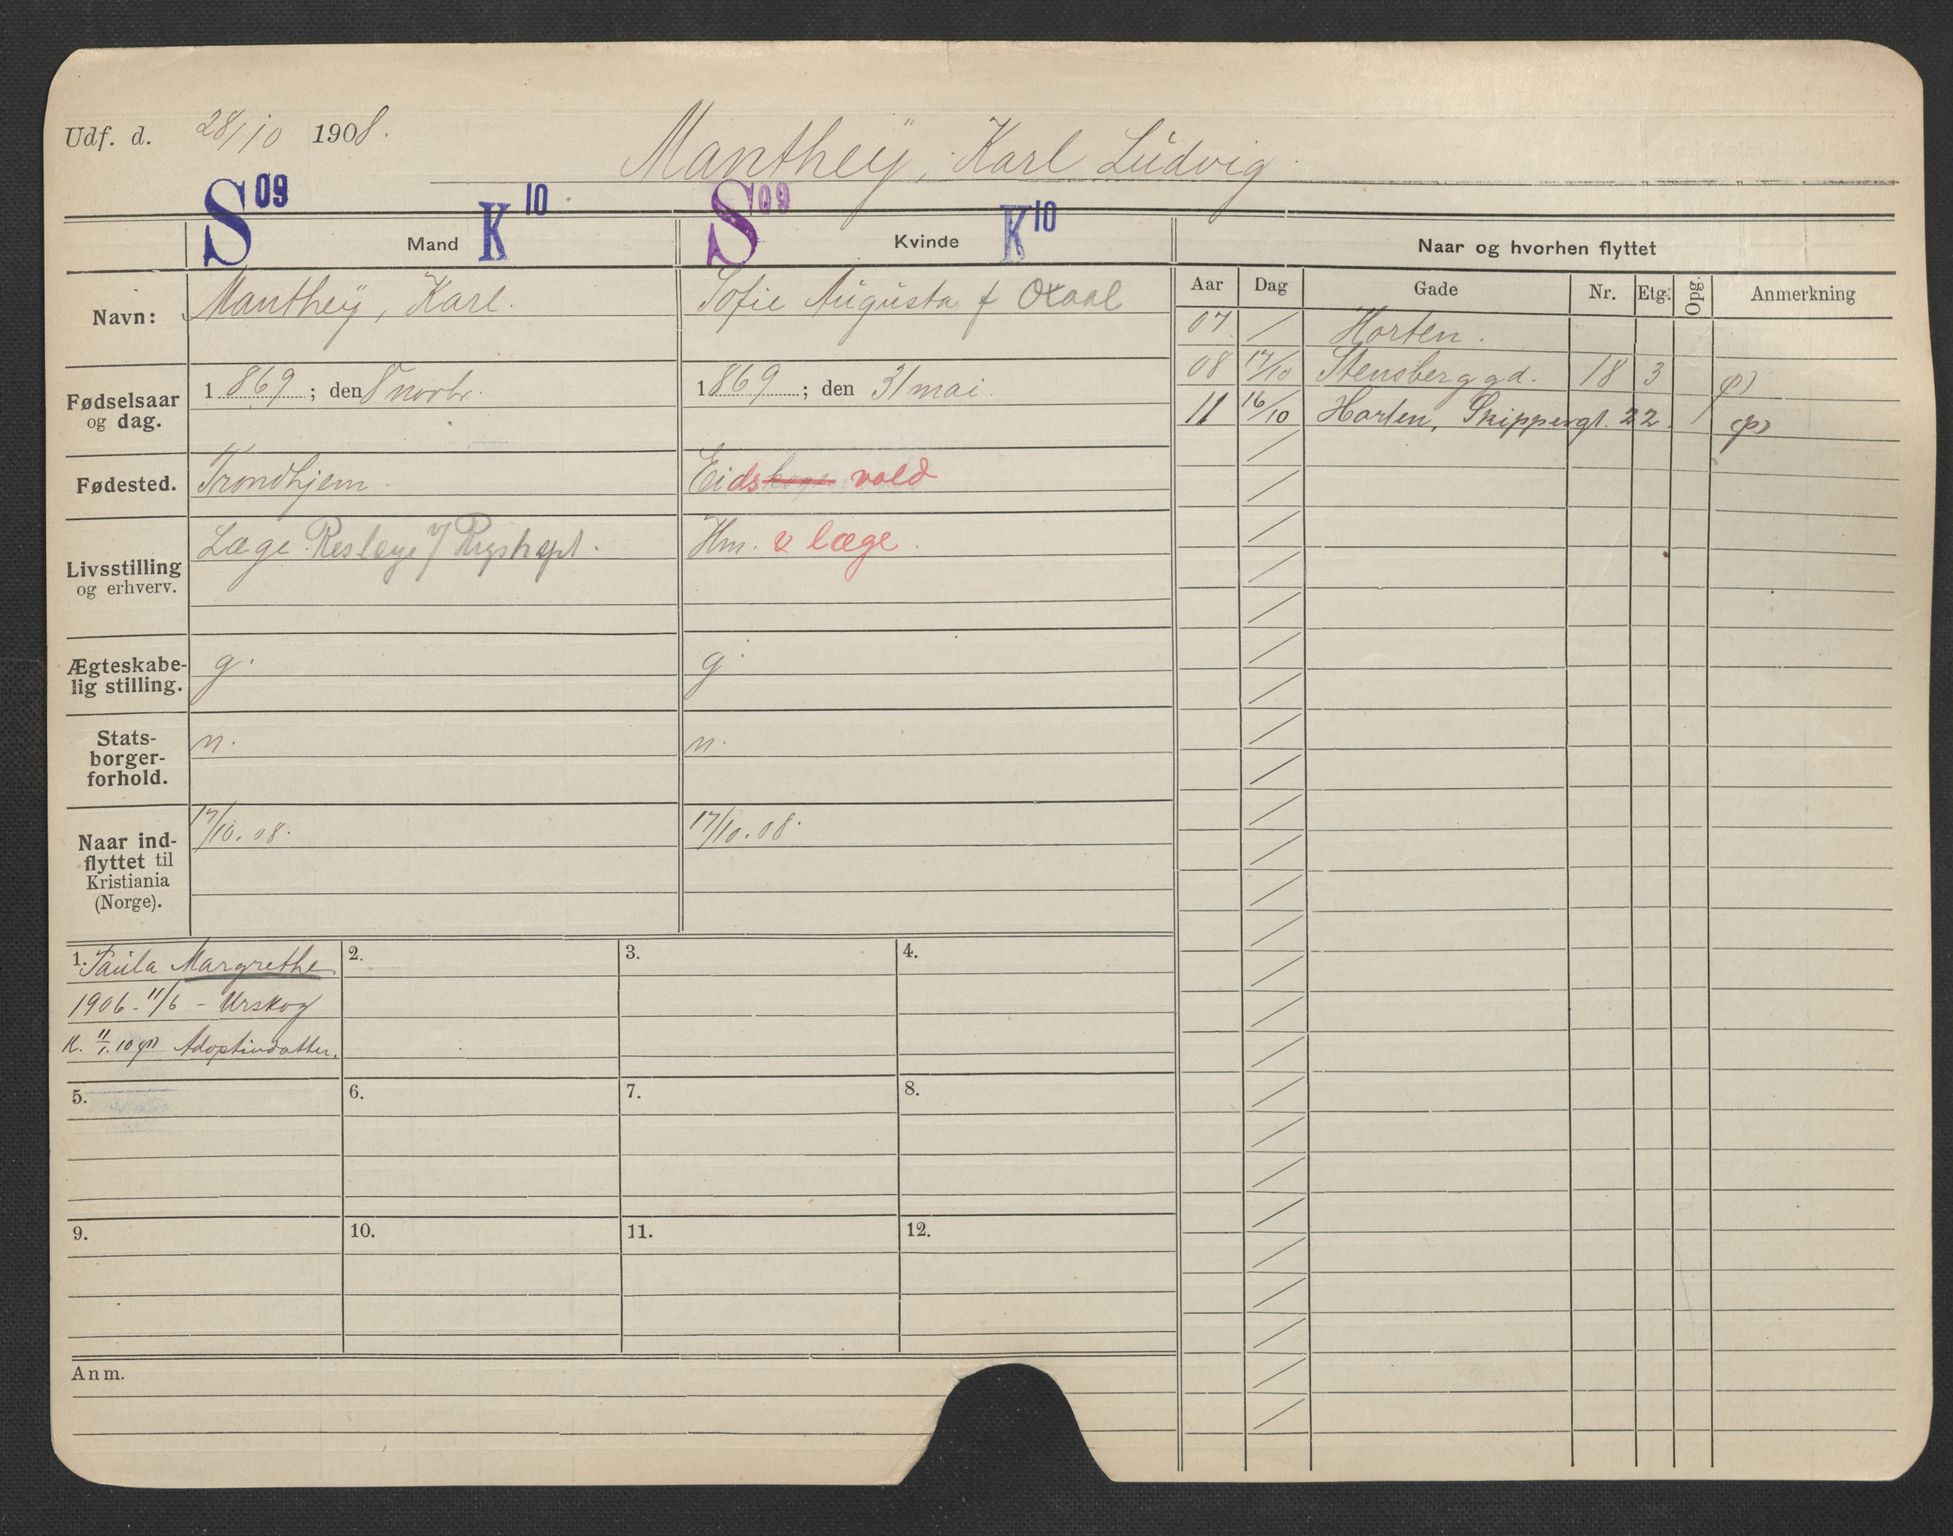 Udf. d. 28/10 1908.
Manthey, Karl Ludvig.
S 09 K 10 S 09 K 10
Mand Kvinde Naar og hvorhen flyttet
Aar Dag Gade Nr. Etg. Opg. Anmerkning
Navn: Manthey, Karl. Sofie Augusta f Oxaal
07 / Horten.
08 17/10 Stensberggd. 18 3
11 16/10 Horten, Skippergt. 22.
Fødselsaar 1869; den 8 novbr. 1869; den 31 mai.
og dag.
Fødested. Trondhjem. Eidskog vold
Livsstilling Læge. Reslæge v/ Rigshspt. Hm. v læge.
og erhverv.
Ægteskabe- g. g.
lig stilling.
Stats- n. n.
borger-
forhold.
Naar ind- 17/10.08. 17/10.08.
flyttet til
Kristiania
(Norge).
1. Paula Margrethe 2. 3. 4.
1906 - 11/6 - Urskog
K. 11/1.10 Adoptivdatter.
5. 6. 7. 8.
9. 10. 11. 12.
Anm.